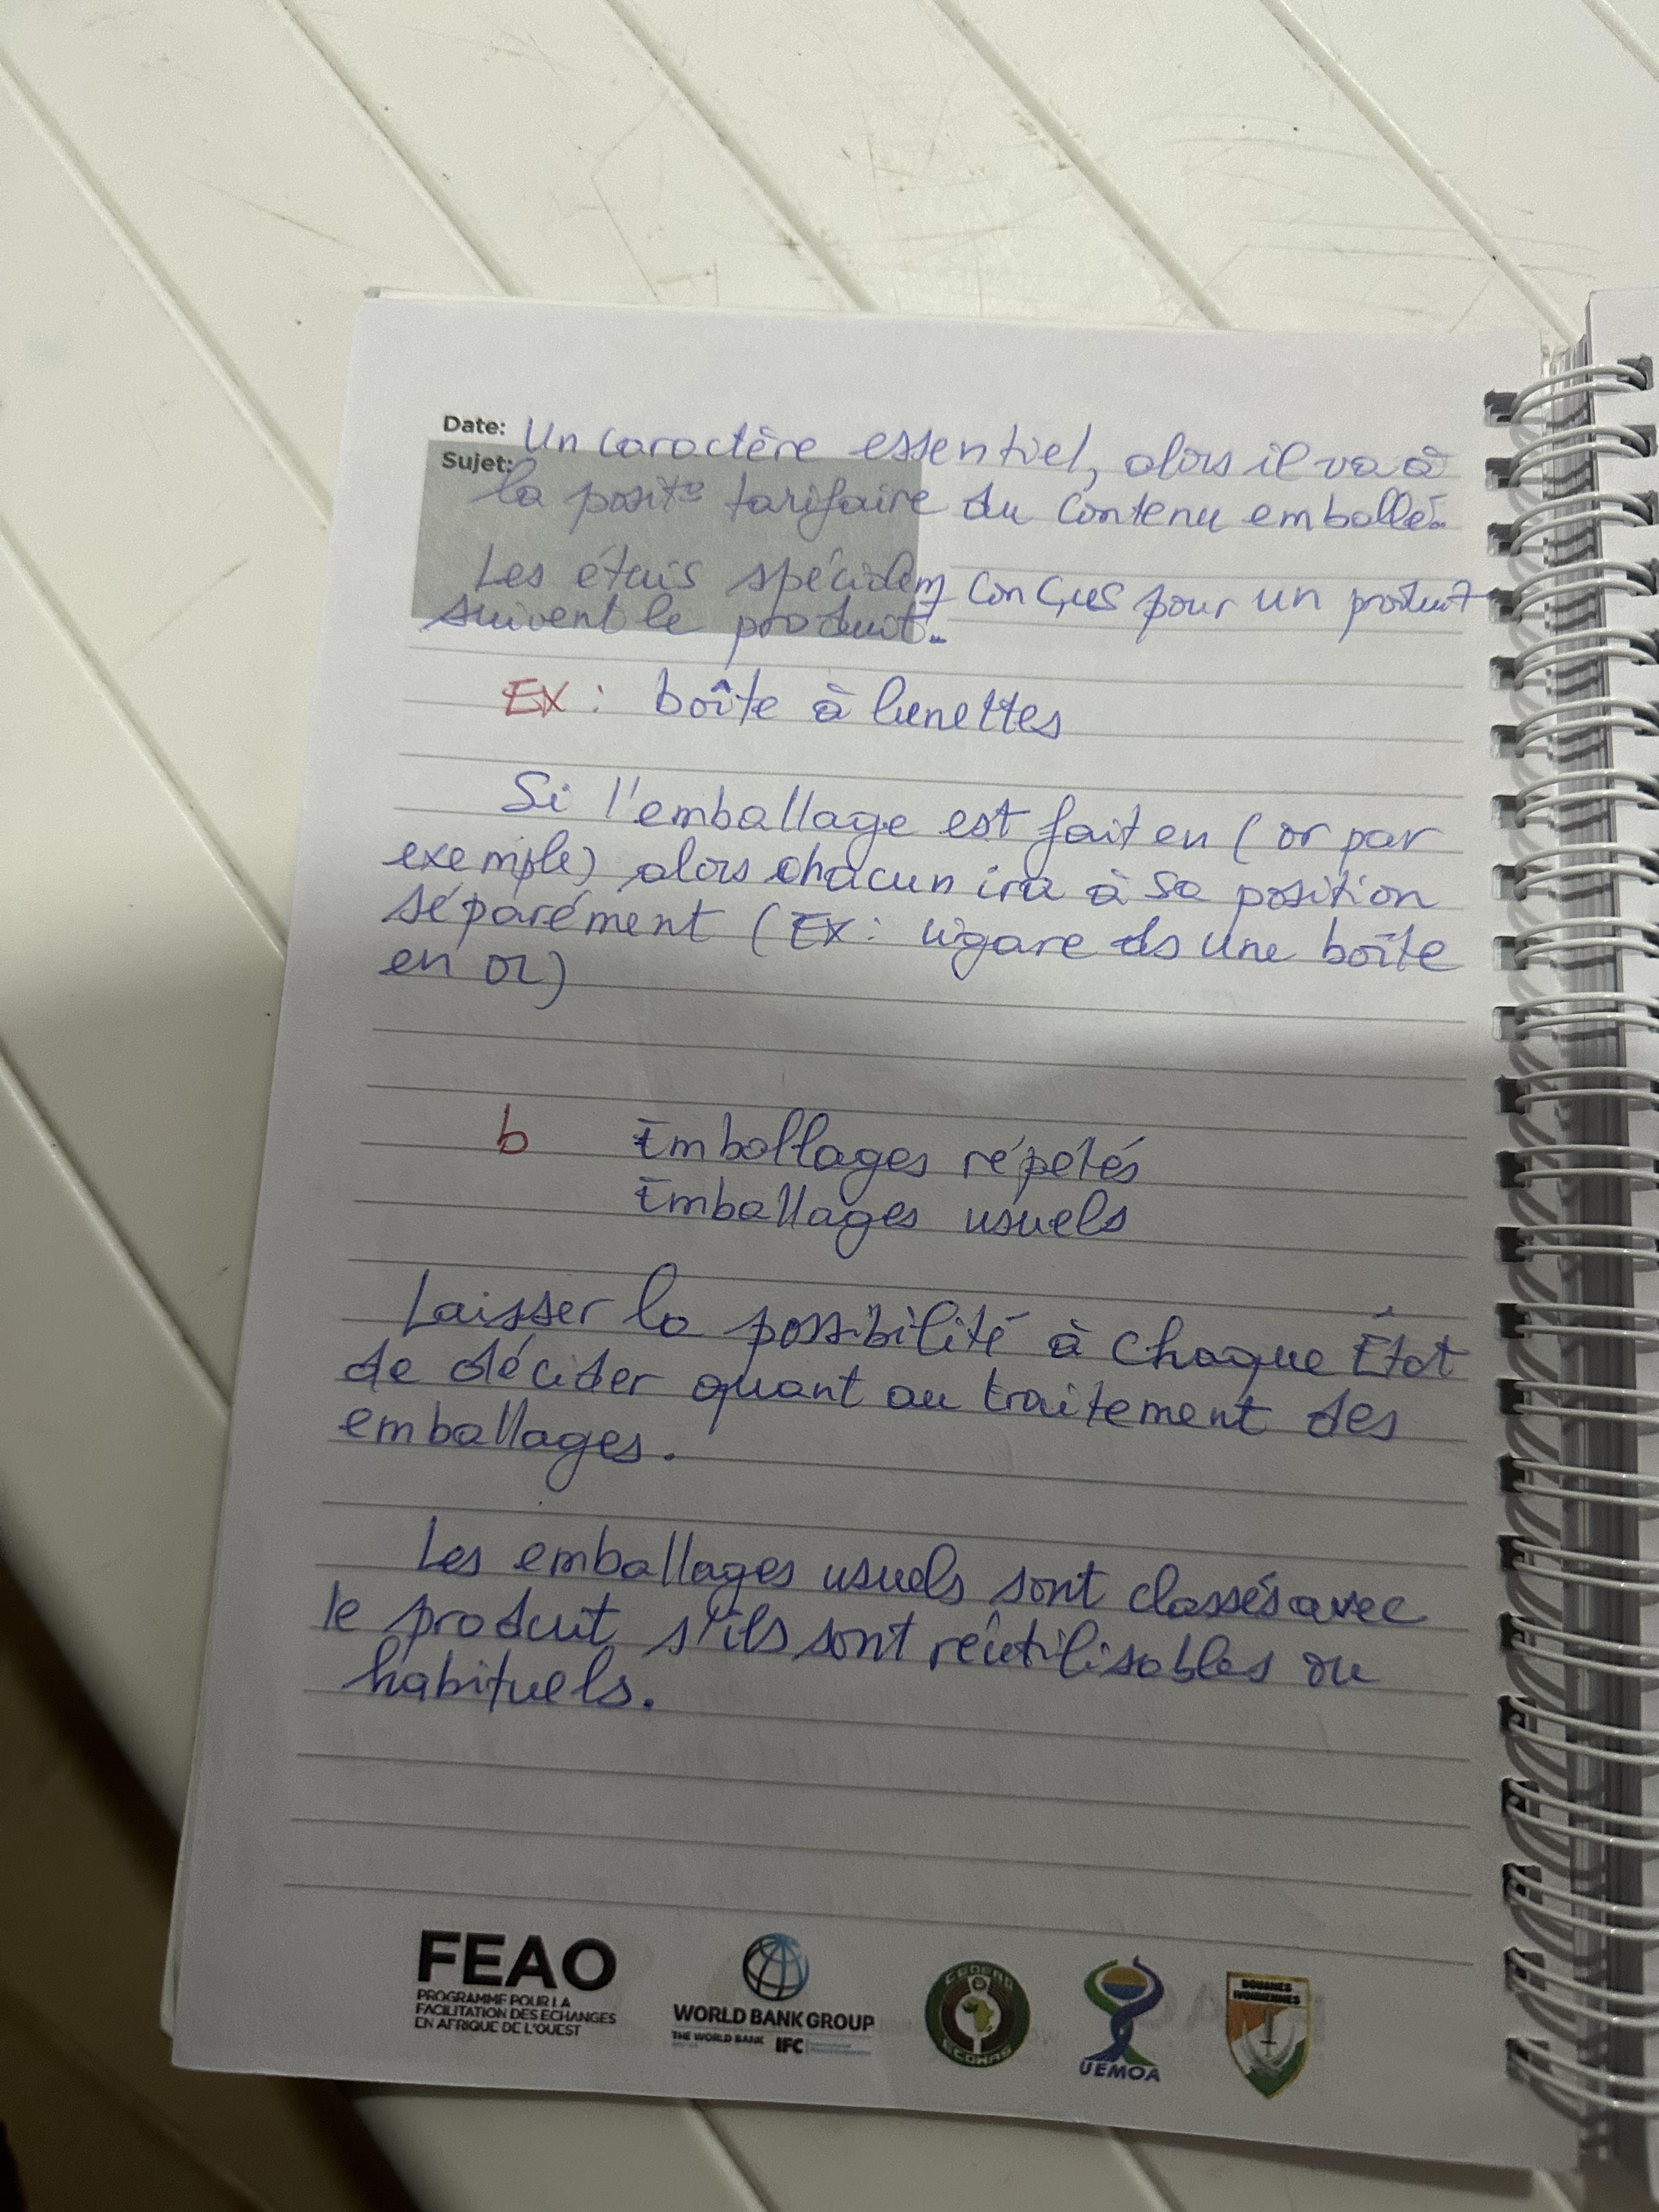 Date: Un caractère essentiel, alors il va à
Sujet: la posit° tarifaire du contenu emballé.
Les étuis spécialemt conçus pour un produit
suivent le produit.
Ex : boîte à lunettes
Si l'emballage est fait en (or par
exemple) alors chacun ira à sa position
séparément (Ex : cigare ds une boîte
en or)
b Emballages répétés
Emballages usuels
Laisser la possibilité à chaque État
de décider quant au traitement des
emballages.
Les emballages usuels sont classés avec
le produit s'ils sont réutilisables ou
habituels.
FEAO
PROGRAMME POUR LA
FACILITATION DES ECHANGES
EN AFRIQUE DE L'OUEST
WORLD BANK GROUP
THE WORLD BANK IFC
CEDEAO
ECOWAS
UEMOA
DOUANES
IVOIRIENNES